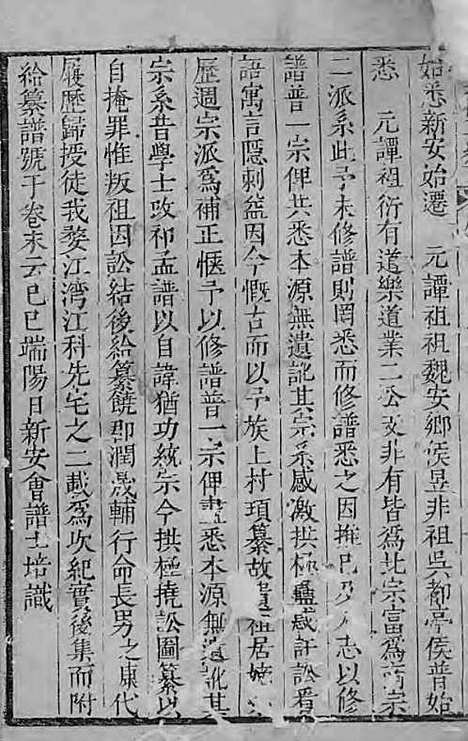 始悉新安始遷　元譚祖祖魏安鄉侯昱非祖吳都亭侯普始
悉　元譚祖衍有道樂道業二公支非有皆為北宗富為南宗
二派系此予未修譜則罔悉而修譜悉之因推己及人志以修
譜普一宗俾共悉本源無遺訛其宗系感激拱極蠱惑訐訟看
語寓言隱刺益因今慨古而以予族上村項纂故祖居
歷週宗派為補正愜予以修譜普一宗俾盡悉本源無遺訛其
宗系昔學士政祁孟譜以自諱猶功統宗今拱極撓訟圖纂以
自掩罪惟叛祖因訟結後給纂饒郡潤晟輔行命長男之東代
履歷歸授徒我婺江灣江科先宅之二載為次紀實後集而附
給纂譜號于卷末云己巳端陽日新安會譜士培識